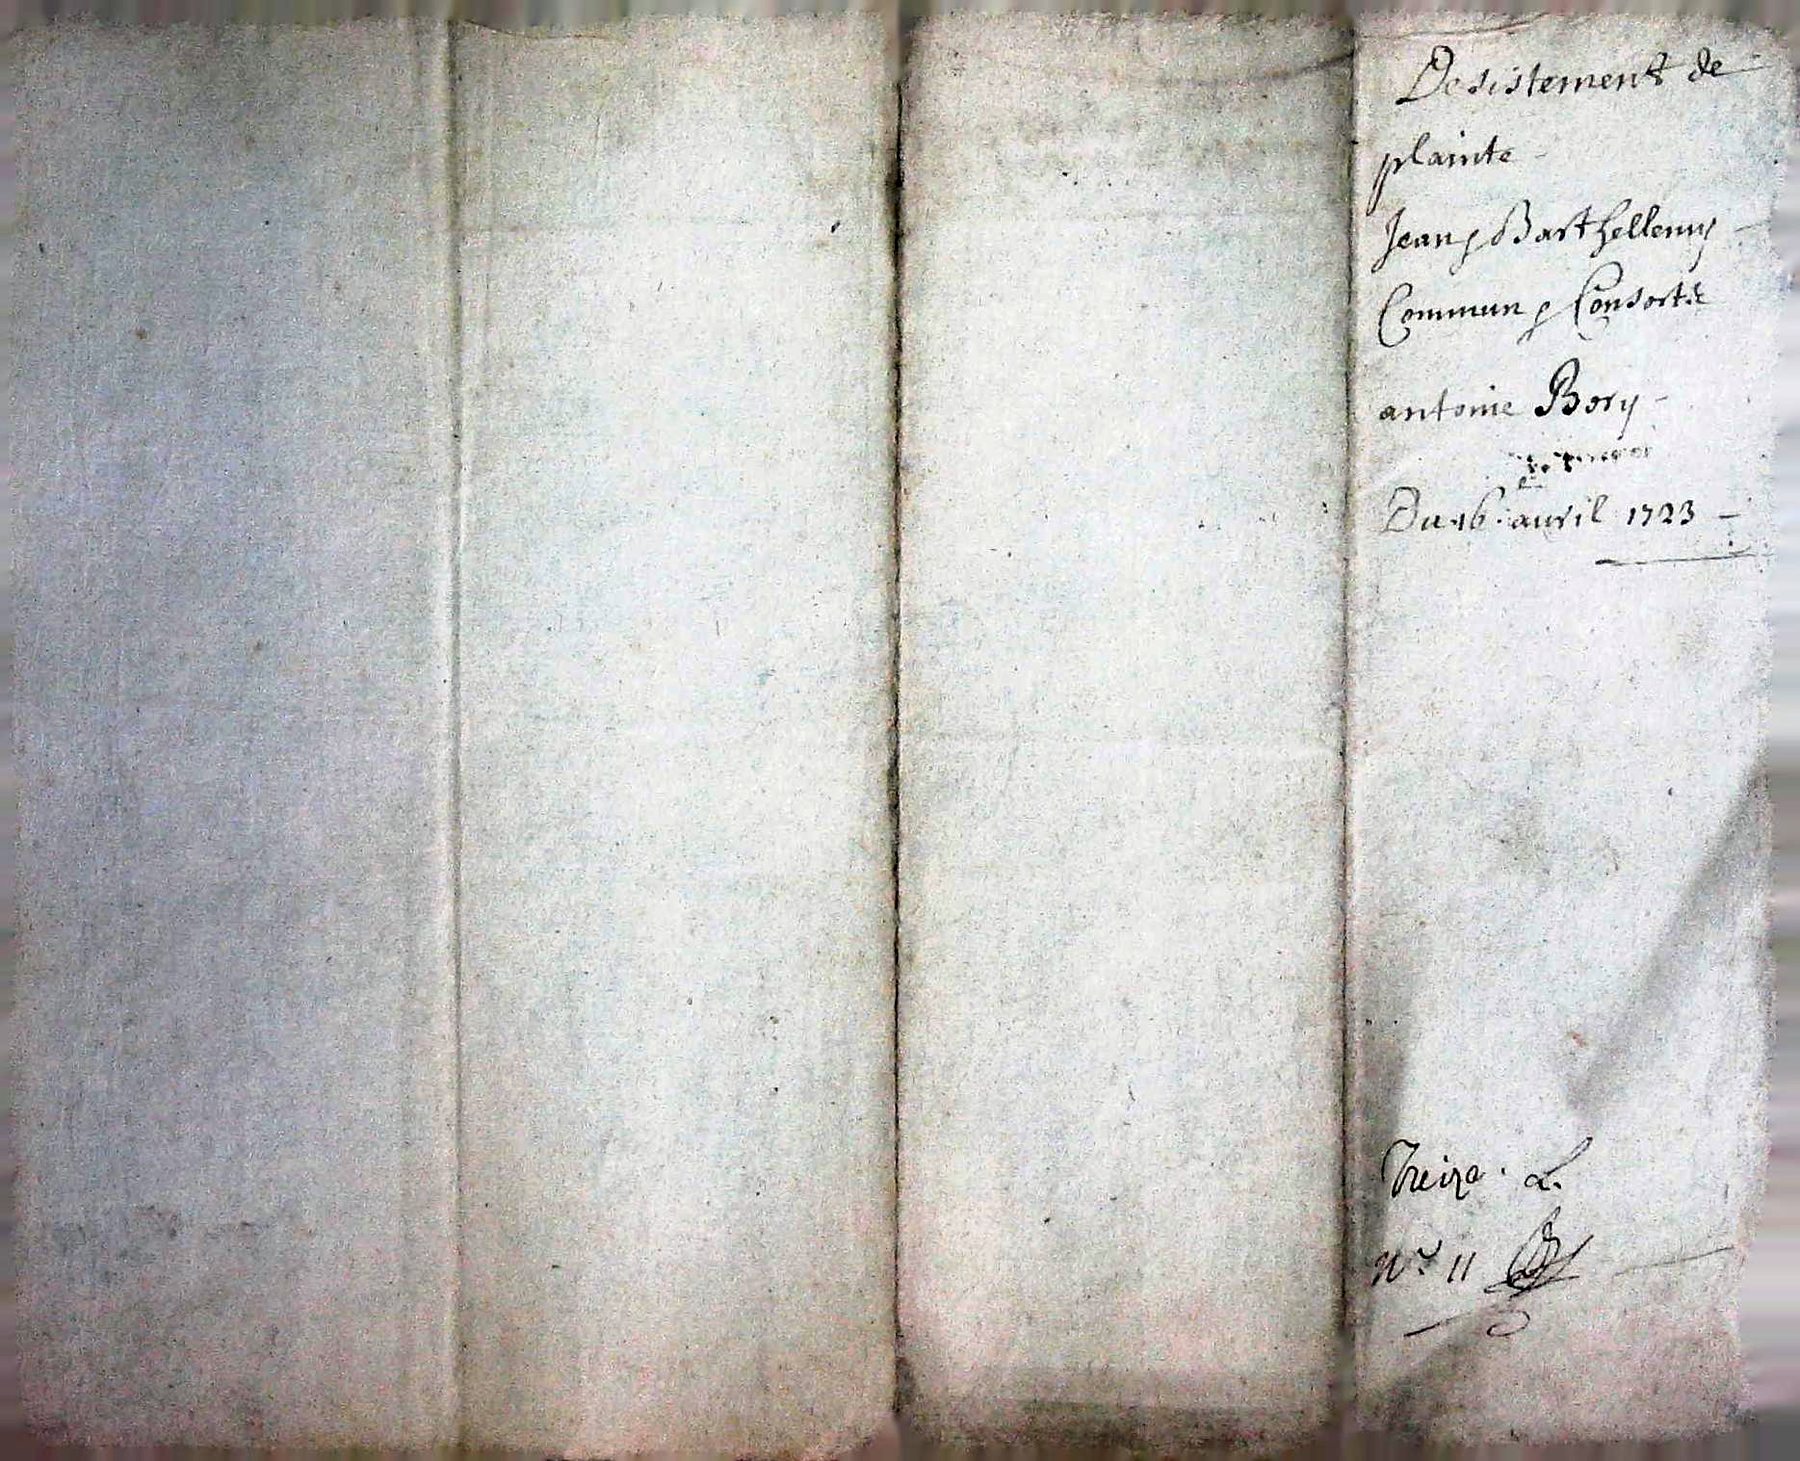 Desistement de
plainte
Jean & Barthellemy
Commun & Consorts
antoine Bory
Du 16 auril 1723
Treize. L.
N.º 11